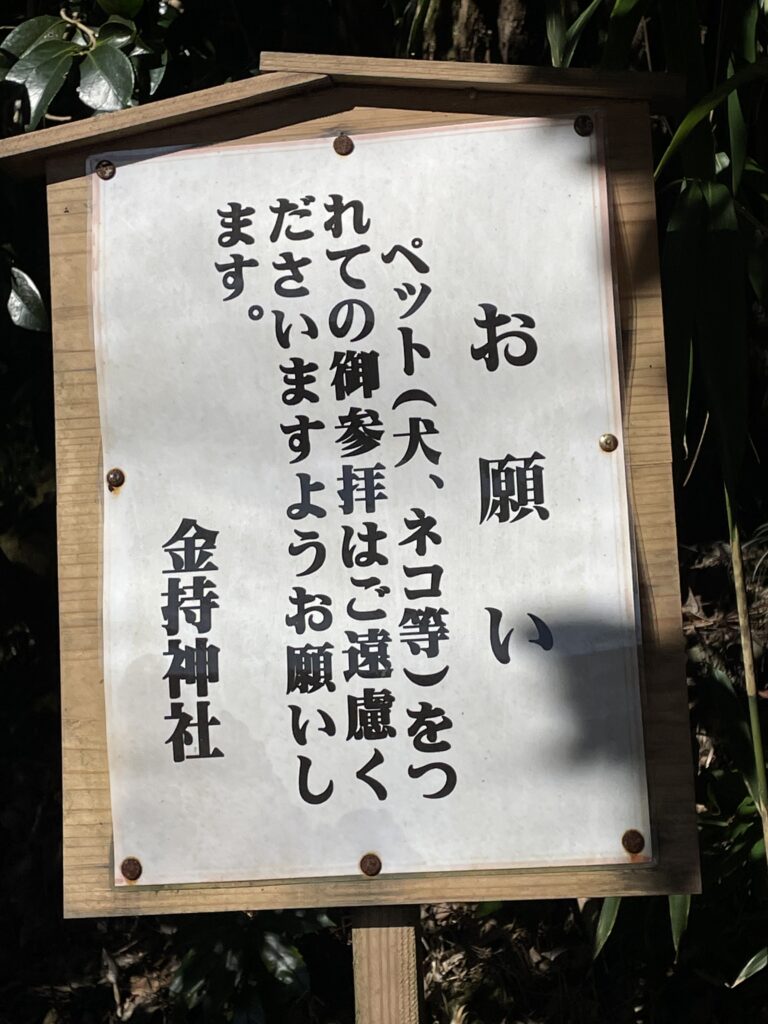 お願い
ペット(犬、ネコ等)をつ
れての御参拝はご遠慮く
ださいますようお願いし
ます。
金持神社